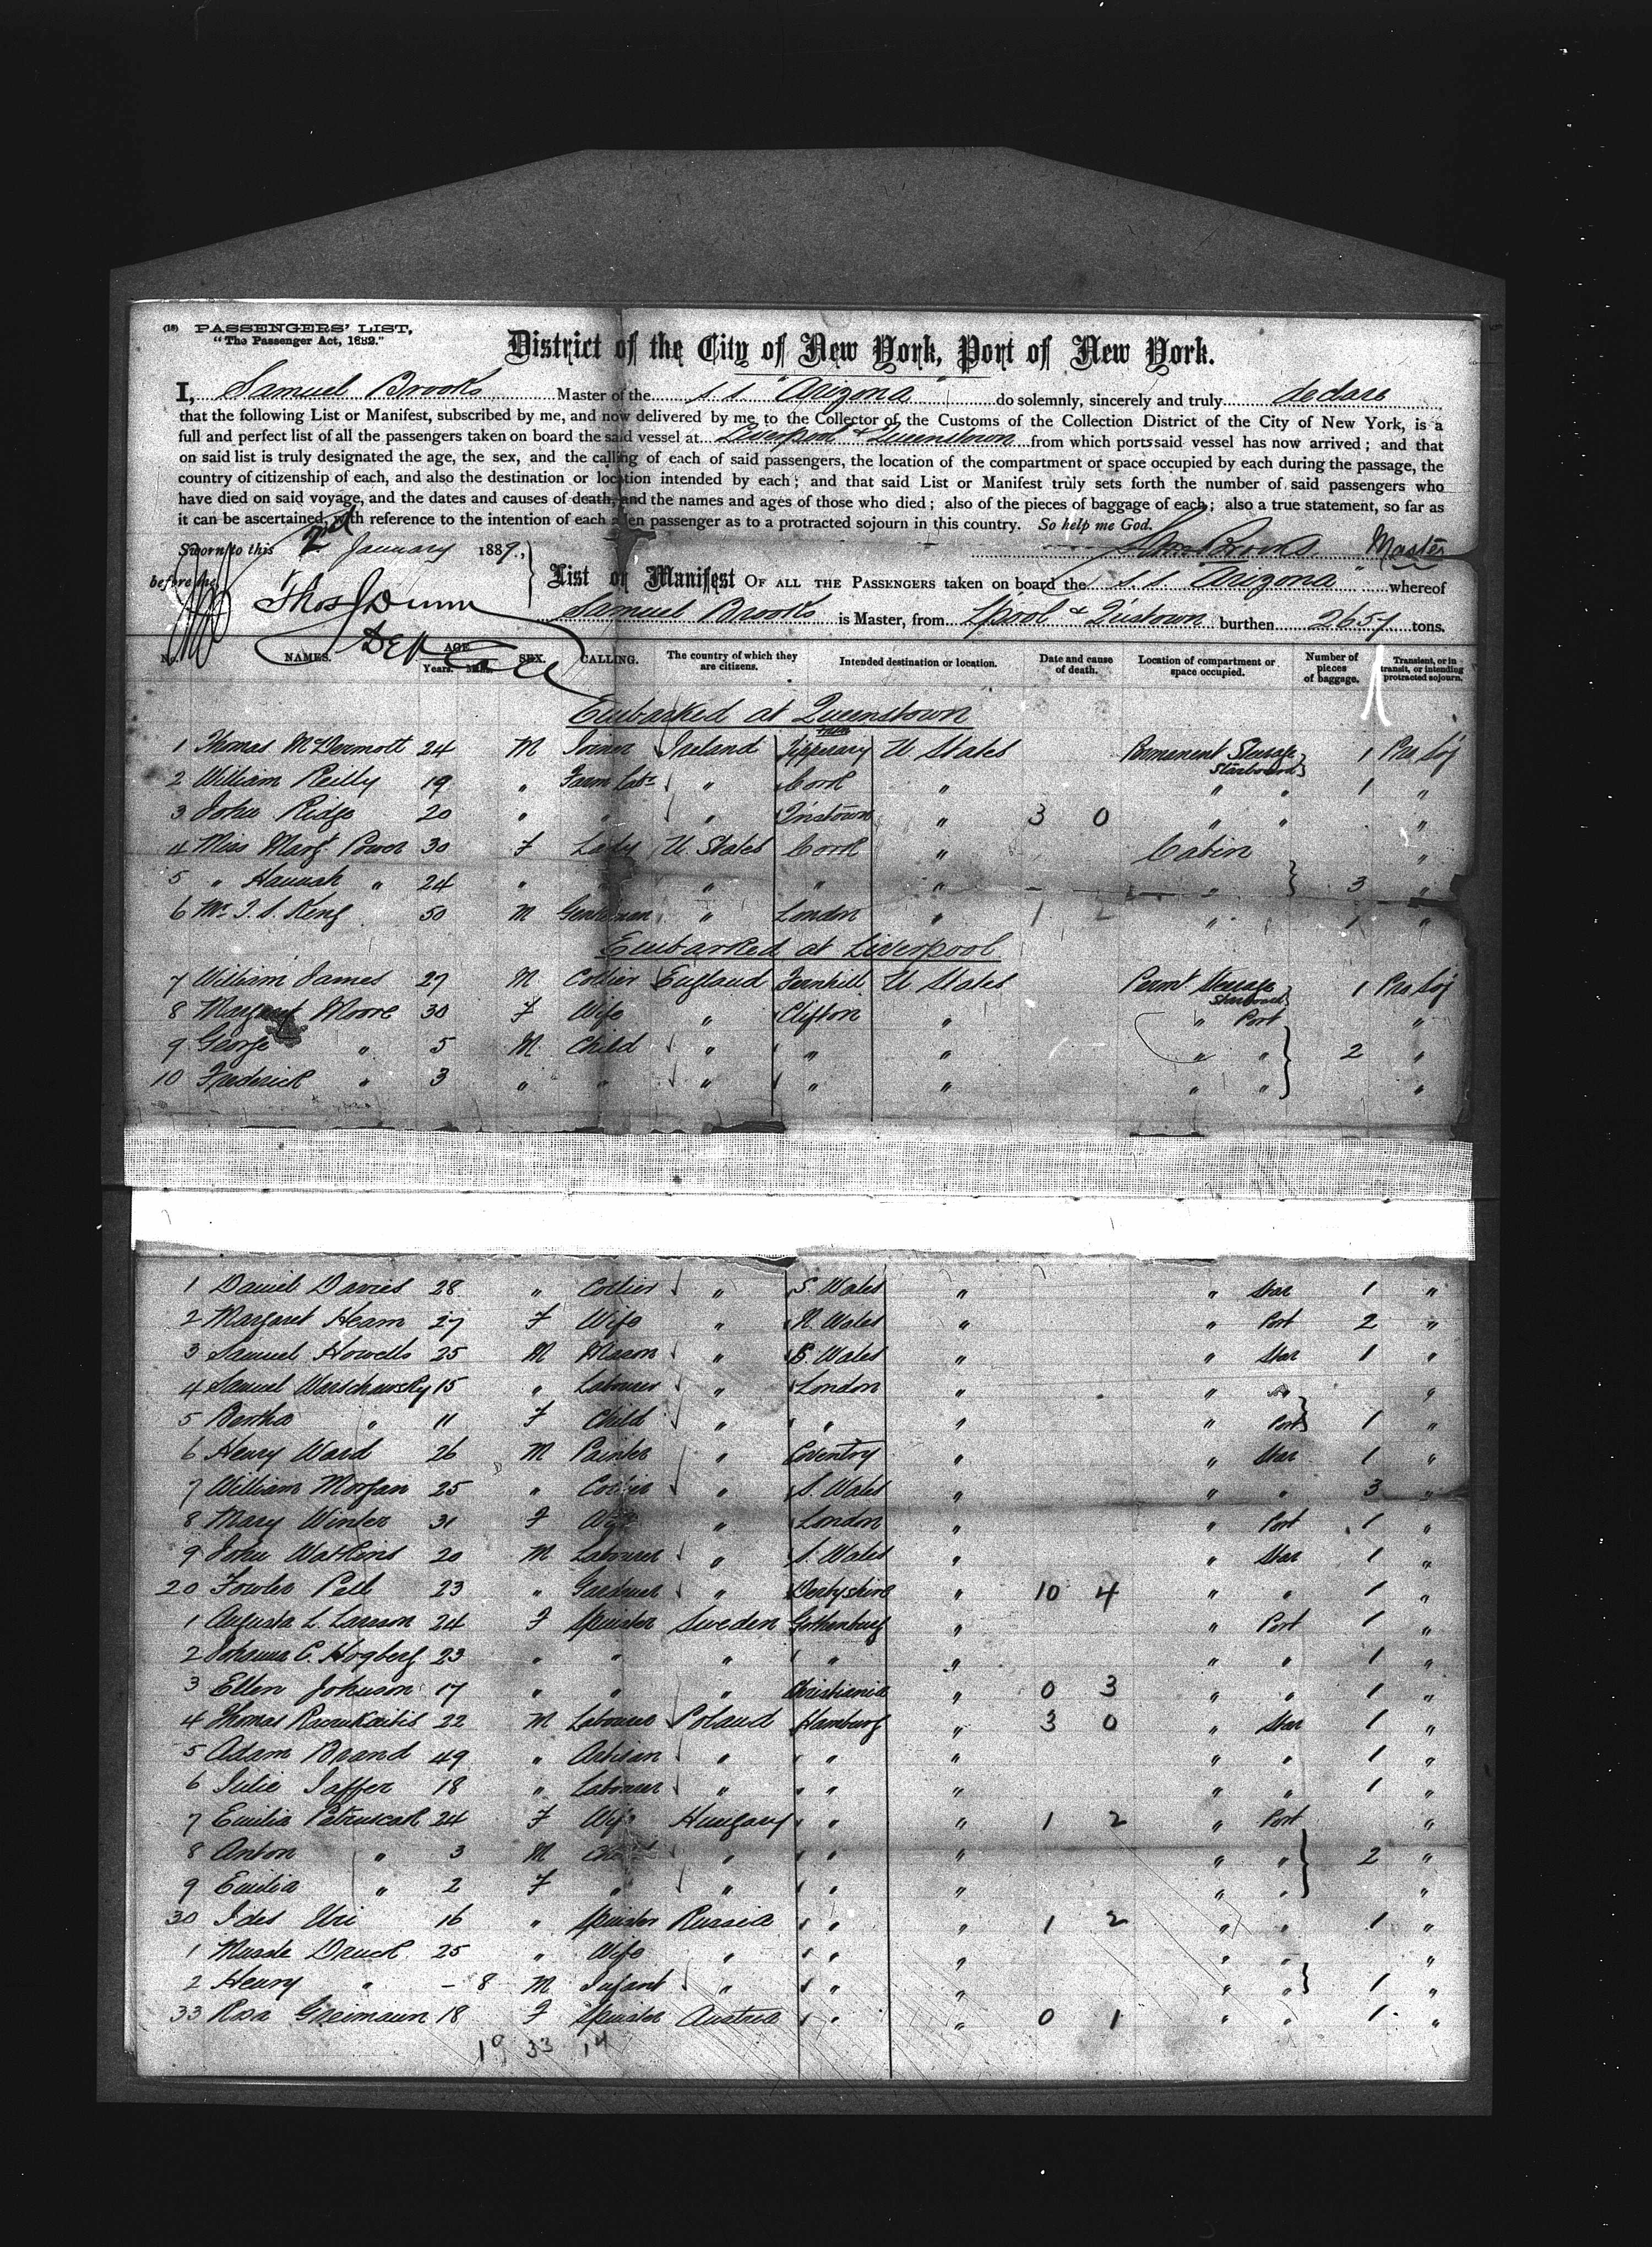 (18) PASSENGERS' LIST,
"The Passenger Act, 1882."
District of the City of New York, Port of New York.
I, Samuel Brooks Master of the s.s. "Arizona" do solemnly, sincerely and truly declare
that the following List or Manifest, subscribed by me, and now delivered by me to the Collector of the Customs of the Collection District of the City of New York, is a
full and perfect list of all the passengers taken on board the said vessel at Liverpool & Queenstown from which ports said vessel has now arrived; and that
on said list is truly designated the age, the sex, and the calling of each of said passengers, the location of the compartment or space occupied by each during the passage, the
country of citizenship of each, and also the destination or location intended by each; and that said List or Manifest truly sets forth the number of said passengers who
have died on said voyage, and the dates and causes of death, and the names and ages of those who died; also of the pieces of baggage of each; also a true statement, so far as
it can be ascertained, with reference to the intention of each alien passenger as to a protracted sojourn in this country. So help me God.
Sworn to this 2nd January 1889, Brooks Master
before me List or Manifest OF ALL THE PASSENGERS taken on board the s.s. Arizona whereof
Thos J Dunn
Samuel Brooks is Master, from L'pool & Q'ustown burthen 2657 tons.
No. NAMES. AGE Years. Mths. SEX. CALLING. The country of which they are citizens. Intended destination or location. Date and cause of death. Location of compartment or space occupied. Number of pieces of baggage. Transient, or in transit, or intending protracted sojourn.
Embarked at Queenstown
1 Thomas McDermott 24 M Joiner Ireland Tipperary U States Permanent Steerage Starboard 1 Pro Soj
2 William Reilly 19 " Farm Labr " Cork " " " 1 "
3 John Ridge 20 " " " Q'nstown " 3 0 " " "
4 Miss Margt Power 30 F Lady U. States Cork " Cabin "
5 " Hannah " 24 " " " " " " 3 "
6 Mr J. S. King 50 M Gentleman " London " 1 2 " 1 "
Embarked at Liverpool
7 William James 27 M Collier England Fernhill U States Permt Steerage Starboard 1 Pro Soj
8 Margaret Moore 30 F Wife " Clifton " " Port "
9 George " 5 M Child " " " " " 2 "
10 Frederick " 3 " " " " " " " "
1 Daniel Davies 28 " Collier " S. Wales " " Star 1 "
2 Margaret Heam 27 F Wife " N. Wales " " Port 2 "
3 Samuel Howells 25 M Mason " S. Wales " " Star 1 "
4 Samuel Warschawsky 15 " Labourer " London " " " "
5 Bertha " 11 F Child " " " " Port 1 "
6 Henry Ward 26 M Painter " Coventry " " Star 1 "
7 William Morgan 25 " Collier " S. Wales " " " 3 "
8 Mary Winter 31 F Wife " London " " Port 1 "
9 John Watkins 20 M Labourer " S. Wales " " Star 1 "
20 Fowler Pell 23 " Gardener " Derbyshire " 10 4 " " 1 "
1 Augusta L. Larsson 24 F Spinster Sweden Gothenburg " " Port 1 "
2 Johanna C. Hogberg 23 " " " " " " " 1 "
3 Ellen Johnson 17 " " " Christiania " 0 3 " " 1 "
4 Thomas 22 M Labourer Poland Hamburg " 3 0 " Star 1 "
5 Adam Brand 49 " Artisan " " " " " 1 "
6 Julie Jaffer 18 " Labourer " " " " " 1 "
7 Emilia 24 F Wife Hungary " " 1 2 " Port "
8 Anton " 3 M Child " " " " " 2 "
9 Emilia " 2 F " " " " " " "
30 Ides 16 " Spinster Russia " " 1 2 " " 1 "
1 Druck 25 " Wife " " " " " "
2 Henry " - 8 M Infant " " " " " 1 "
33 Rosa 18 F Spinster Austria " " 0 1 " " 1 "
19 33 14